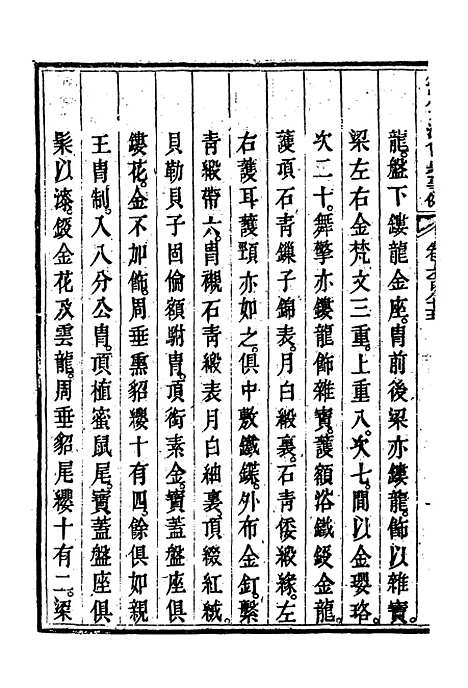 龍。盤下鏤龍金座。胄前後梁亦鏤龍。飾以雜寶。
梁左右金梵文三重。上重八。次七。間以金瓔珞。
次二十。舞擎亦鏤龍飾雜寶。護額浴鐵鋄金龍。
護項石青鏁子錦表。月白緞裏。石青倭緞緣。左
右護耳護頸亦如之。俱中敷鐵鍱。外布金釘。繫
青緞帶六。胄襯石青緞表月白紬裏。頂綴紅絨。
貝勒貝子固倫額駙胄。頂銜素金。寶蓋盤座俱
鏤花。金不加飾。周垂熏貂纓十有四。餘俱如親
王胄制。入八分公胄。頂植蜜鼠尾。寶蓋盤座俱
髹以漆。鋄金花及雲龍。周垂貂尾纓十有二。梁